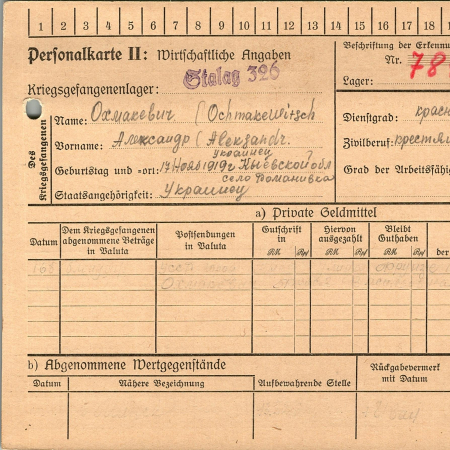 1 2 3 4 5 6 7 8 9 10 11 12 13 14 15 16 17 18
Personalkarte II: Wirtschaftliche Angaben
Beschriftung der Erkennu
Nr. 78
Kriegsgefangenenlager: Stalag 326
Lager:
Des Kriegsgefangenen
Name: Охмакевич (Ochmakewitsch
Dienstgrad: красн
Vorname: Александр (Aleksandr.
Zivilberuf: крестья
украинец
Geburtstag und =ort: 17 Нояб 1919 г Киевской обл
Grad der Arbeitsfähig
село Романивка
Staatsangehörigkeit: Украинец
a) Private Geldmittel
Datum
Dem Kriegsgefangenen abgenommene Beträge in Valuta
Postsendungen in Valuta
Gutschrift in RM Rpf
Hiervon ausgezahlt RM Rpf
Bleibt Guthaben RM Rpf
der
b) Abgenommene Wertgegenstände
Rückgabevermerk mit Datum
Datum
Nähere Bezeichnung
Aufbewahrende Stelle